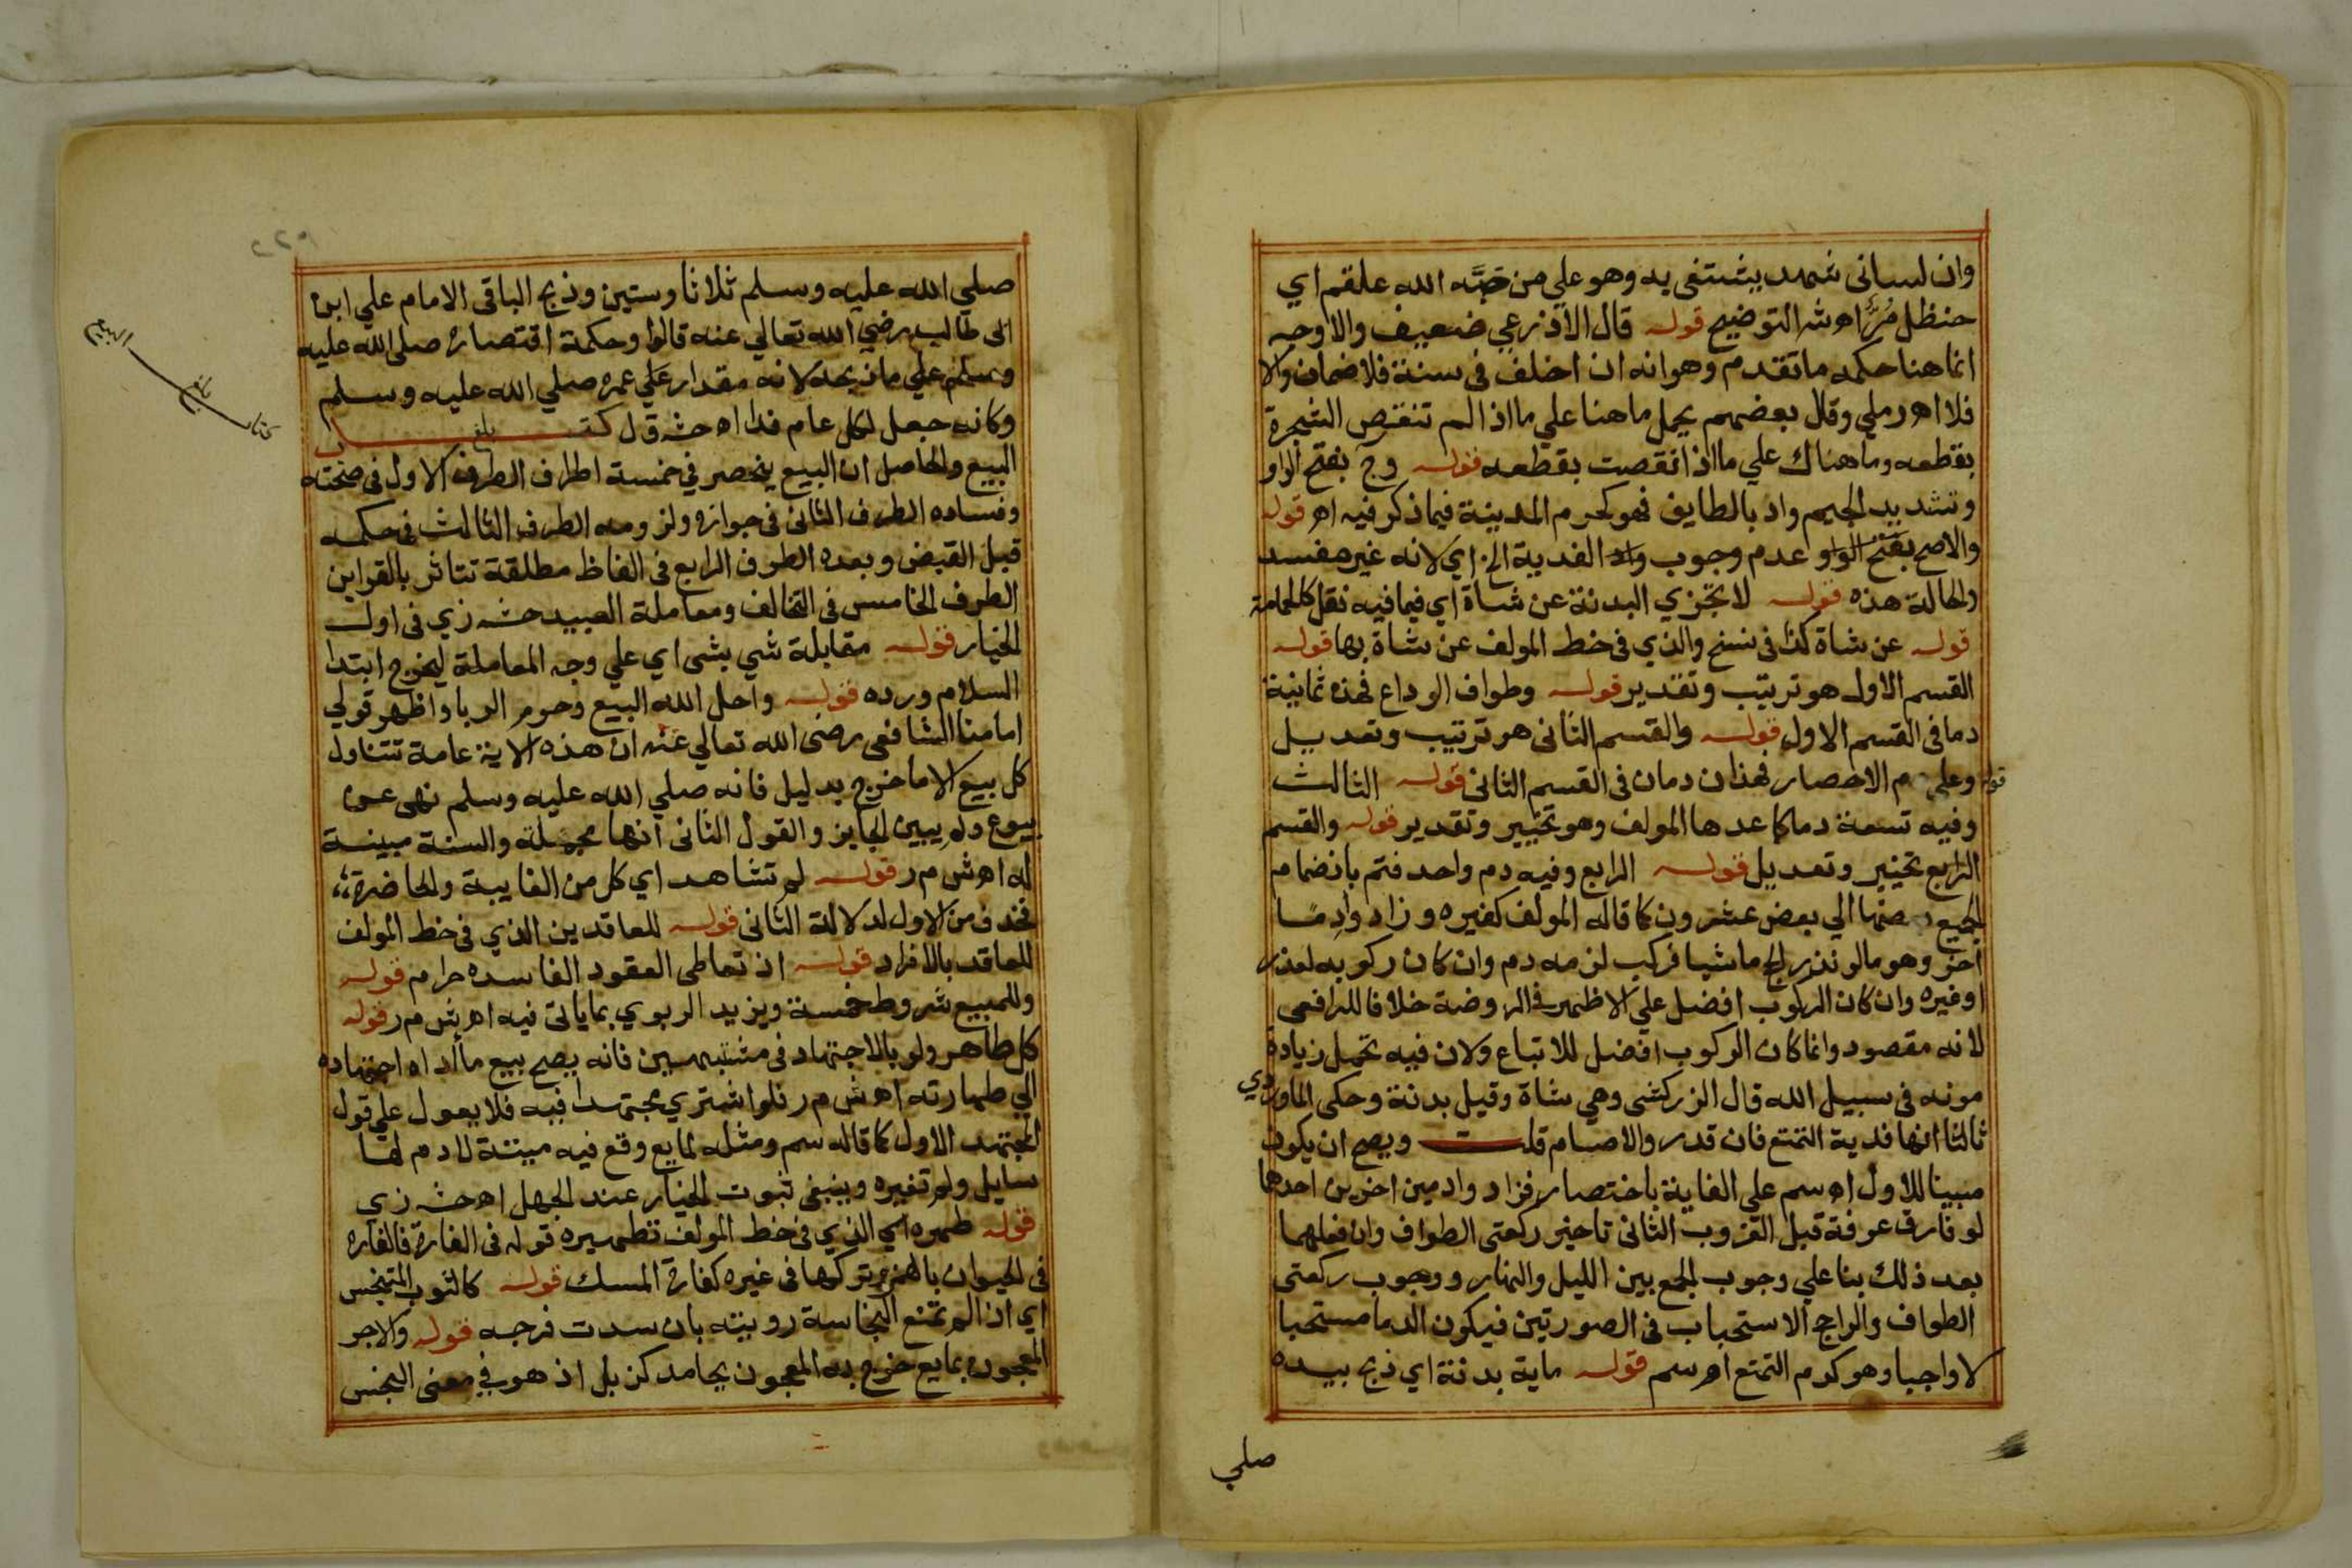 وان لسانى شهد يشتفى به وهو علي من صبّه الله علقم اي
حنظل مُرٌّ اهـ ش التوضيح قوله قال الاذرعي ضعيف والاوجه
انما هنا حكمه ما تقدم وهو انه ان اخلف فى سنة فلا ضمان والا
فلا اهـ رملي وقال بعضهم يحمل ما هنا علي ما اذا لم تنقص الشجرة
بقطعه وما هناك علي ما اذا نقصت بقطعه قوله وج بفتح الواو
وتشديد الجيم واد بالطايف فهو كحرم المدينة فيما ذكر فيه اهـ قوله
والاصح بفتح الواو عدم وجوب واد الفدية الخ اي لانه غير مفسد
والحالة هذه قوله لا تجزي البدنة عن شاة اي فيما فيه نقل كالحمامة
قوله عن شاة كذا فى نسخ والذي فى خط المولف عن شاة بها قوله
القسم الاول هو ترتيب وتقدير قوله وطواف الوداع فهذه ثمانية
دما فى القسم الاول قوله والقسم الثانى هو ترتيب وتعديل
قوله وعلي دم الاحصار فهذان دمان فى القسم الثانى قوله الثالث
وفيه تسعة دما كما عدها المولف وهو تخيير وتقدير قوله والقسم
الرابع تخيير وتعديل قوله الرابع وفيه دم واحد فتم بانضمام
الجميع بعضها الي بعض عشرون كما قاله المولف كغيره وزاد وا دمًا
اخر وهو ما لو نذر الحج ماشيا فركب لزمه دم وان كان ركوبه لعذر
او غيره وان كان الركوب افضل علي الاظهر فى الروضة خلافا للرافعى
لانه مقصود وانما كان الركوب افضل للاتباع ولان فيه تحمل زيادة
مونه فى سبيل الله قال الزركشى وهي شاة وقيل بدنة وحكى الماوردي
ثالثا انها فدية التمتع فان قدر والاصام قلت ويصح ان يكون
مبينا للاول اهـ سم علي الغاية باختصار فزاد وا دمين اخرين احدهما
لو فارق عرفة قبل الغروب الثانى تاخير ركعتى الطواف وان فعلهما
بعد ذلك بنا علي وجوب الجمع بين الليل والنهار ووجوب ركعتى
الطواف والراجح الاستحباب فى الصورتين فيكون الدما مستحبا
لا واجبا وهو كدم التمتع اهـ سم قوله ماية بدنة اي ذبح بيده
صلي
صلي الله عليه وسلم ثلاثا وستين وذبح الباقى الامام علي ابن
ابى طالب رضي الله تعالي عنه قالوا وحكمة اقتصاره صلى الله عليه
وسلم علي ما ذبحه لانه مقدار عمره صلي الله عليه وسلم
وكانه جعل لكل عام فدا اهـ حش ق ل كتاب
بلغ
البيع والحاصل ان البيع ينحصر في خمسة اطراف الطرف الاول فى صحته
وفساده الطرف الثانى فى جوازه ولزومه الطرف الثالث فى حكمه
قبل القبض وبعده الطرف الرابع فى الفاظ مطلقة تتاثر بالقراين
الطرف الخامس فى التحالف ومعاملة العبيد حش زي فى اول
الخيار قوله مقابلة شي بشى اي علي وجه المعاملة ليخرج ابتدا
السلام ورده قوله واحل الله البيع وحرم الربا واظهر قولي
امامنا الشافعى رضى الله تعالي عنه ان هذه الاية عامة تتناول
كل بيع الا ما خرج بدليل فانه صلي الله عليه وسلم نهى عن
بيوع ولم يبين الجايز والقول الثانى انها مجملة والسنة مبينة
لها اهـ ش م ر قوله لم تشاهد اي كل من الغايبة والحاضرة
فحذف من الاول لدلالة الثانى قوله للعاقدين الذي فى خط المولف
للعاقد بالافراد قوله اذ تعاطى العقود الفاسده حرام قوله
وللمبيع شروط خمسة ويزيد الربوي بما ياتى فيه اهـ ش م ر قوله
كل طاهر ولو بالاجتهاد فى مشتبهين فانه يصح بيع ما اداه اجتهاده
الي طهارته اهـ ش م ر فلو اشتري مجتهدا فيه فلا يعول علي قول
المجتهد الاول كما قاله سم ومثله مايع وقع فيه ميتة لا دم لها
سايل ولم تغيره وينبغى ثبوت الخيار عند الجهل اهـ حش زي
قوله طهره اي الذي فى خط المولف تطهيره قوله فى الفارة فالفاره
فى الحيوان بالهمز وتركها فى غيره كفارة المسك قوله كالثوب المتنجس
اي اذا لم تمنع النجاسة رويته بان سدت فرجه قوله والاجر
المعجون بمايع خرج به المعجون بجامد كزبل اذ هو في معنى النجس
كتاب البيع